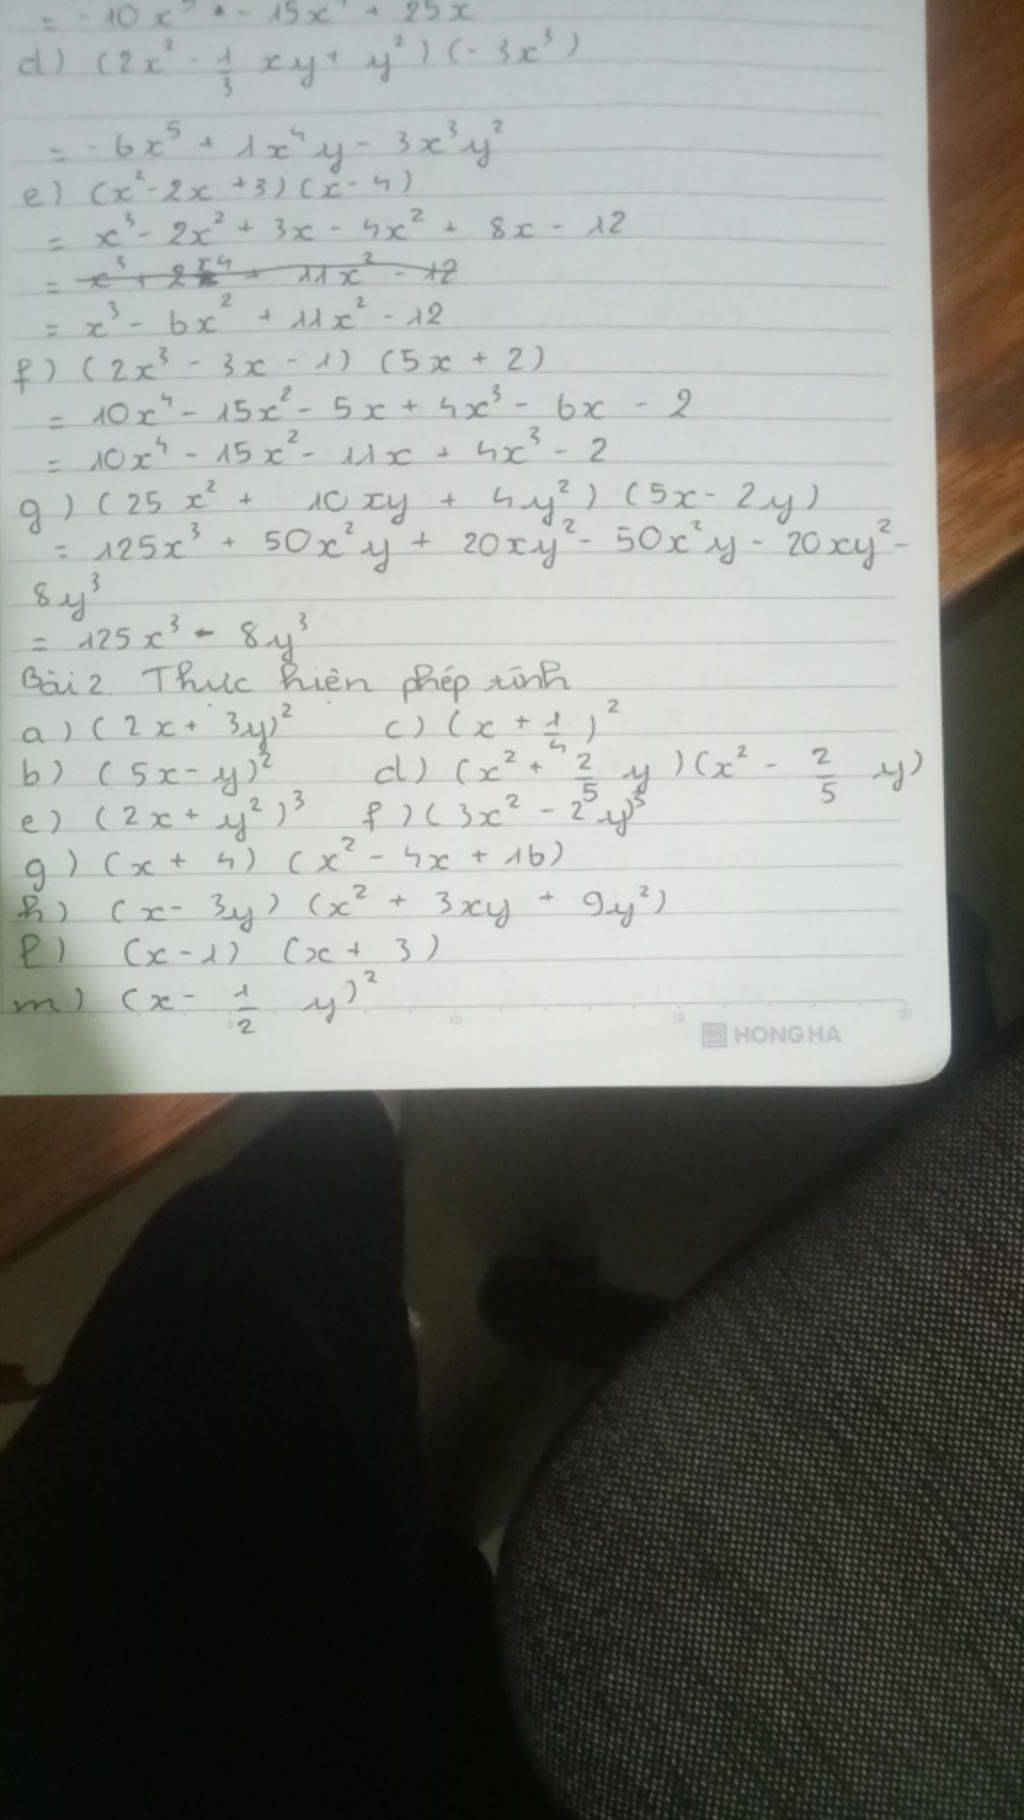 = -10x⁵ - 15x⁴ + 25x
d) (2x² - 1/3 xy + y²) (-3x³)
= -6x⁵ + 1x⁴y - 3x³y²
e) (x² - 2x + 3) (x - 4)
= x³ - 2x² + 3x - 4x² + 8x - 12
= x³ - 6x² + 11x² - 12
f) (2x³ - 3x - 1) (5x + 2)
= 10x⁴ - 15x² - 5x + 4x³ - 6x - 2
= 10x⁴ - 15x² - 11x + 4x³ - 2
g) (25x² + 10xy + 4y²) (5x - 2y)
= 125x³ + 50x²y + 20xy² - 50x²y - 20xy² -
8y³
= 125x³ - 8y³
Bài 2. Thực hiện phép tính
a) (2x + 3y)² c) (x + 1/4)²
b) (5x - y)² d) (x² + 2/5 y) (x² - 2/5 y)
e) (2x + y²)³ f) (3x² - 2y)³
g) (x + 4) (x² - 4x + 16)
h) (x - 3y) (x² + 3xy + 9y²)
l) (x - 1) (x + 3)
m) (x - 1/2 y)²
5 10 15 20
HONG HA